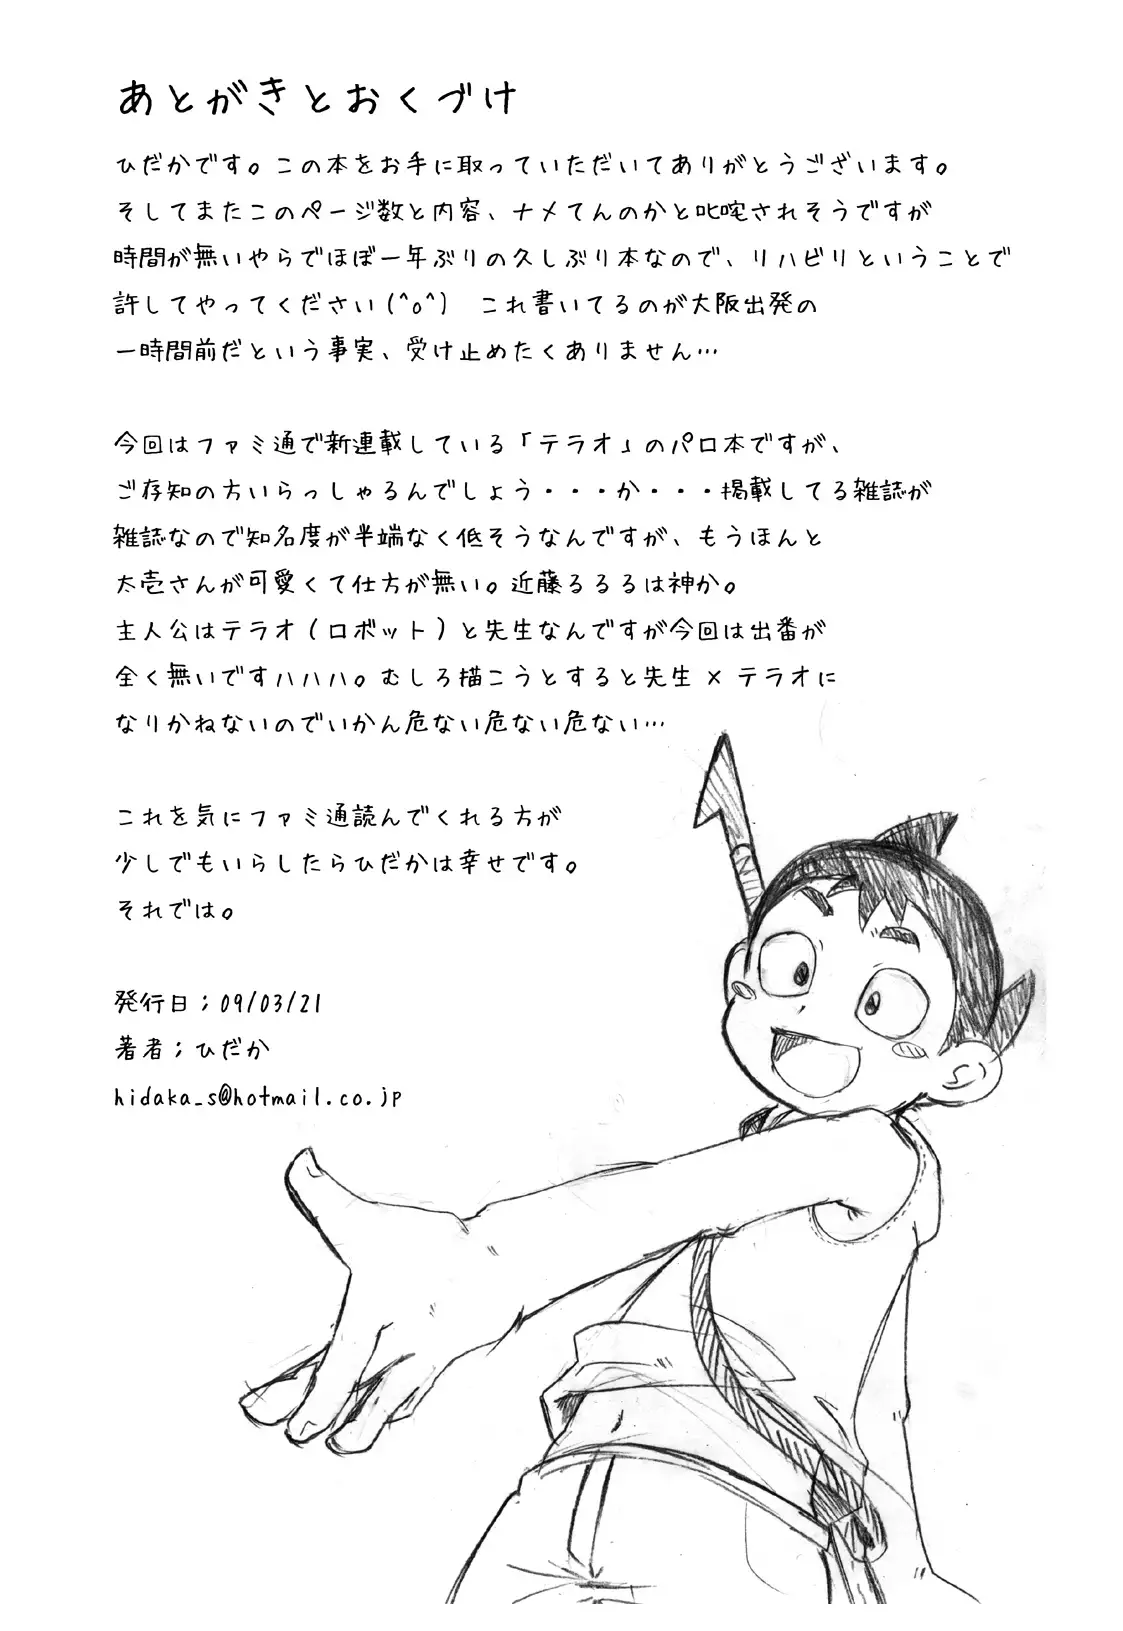 あとがきとおくづけ
ひだかです。この本をお手に取っていただいてありがとうございます。
そしてまたこのページ数と内容、ナメてんのかと叱咤されそうですが
時間が無いやらでほぼ一年ぶりの久しぶり本なので、リハビリということで
許してやってください(^o^)　これ書いてるのが大阪出発の
一時間前だという事実、受け止めたくありません…
今回はファミ通で新連載している「テラオ」のパロ本ですが、
ご存知の方いらっしゃるんでしょう・・・か・・・掲載してる雑誌が
雑誌なので知名度が半端なく低そうなんですが、もうほんと
太壱さんが可愛くて仕方が無い。近藤るるるは神か。
主人公はテラオ(ロボット)と先生なんですが今回は出番が
全く無いですハハハ。むしろ描こうとすると先生×テラオに
なりかねないのでいかん危ない危ない危ない…
これを気にファミ通読んでくれる方が
少しでもいらしたらひだかは幸せです。
それでは。
発行日；09/03/21
著者；ひだか
hidaka_s@hotmail.co.jp